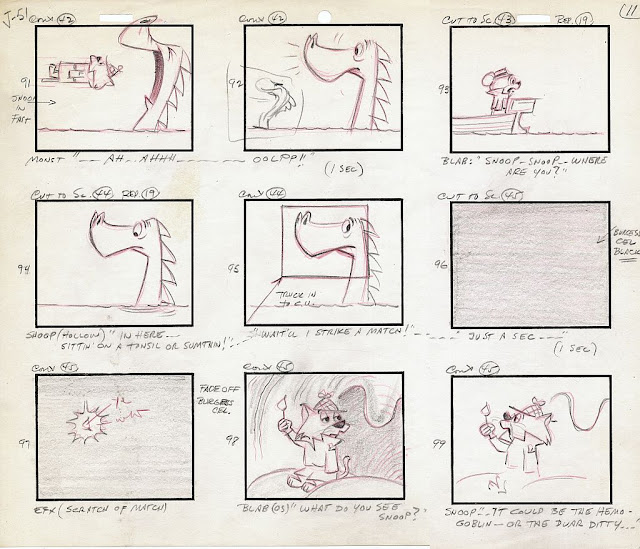 J-51
(11
CONT (42)
CONT (42)
CUT TO SC. (43) REP. (19)
91
SNOOP
IN
FAST
92
93
MONST "-- AH.. AHHH ------ OOLPP!!"
(1 SEC)
BLAB: "SNOOP-SNOOP... WHERE
ARE YOU?"
CUT TO SC. (44) REP (19)
CONT (44)
CUT TO SC. (45)
94
95
TRUCK IN
TO C.U.
96
BURGESS
CEL
BLACK
SNOOP (HOLLOW) "IN HERE---
SITTIN' ON A TONSIL OR SUMTHIN!"
"WAIT'LL I STRIKE A MATCH!"
"JUST A SEC --"
(1 SEC)
CONT (45)
FADE OFF
BURGESS
CEL.
CONT (45)
CONT (45)
97
98
99
EFX (SCRATCH OF MATCH)
"BLAB (OS) "WHAT DO YOU SEE
SNOOP?"
SNOOP "..IT COULD BE THE HEMO-
GOBLIN - OR THE DUAR DITTY..."